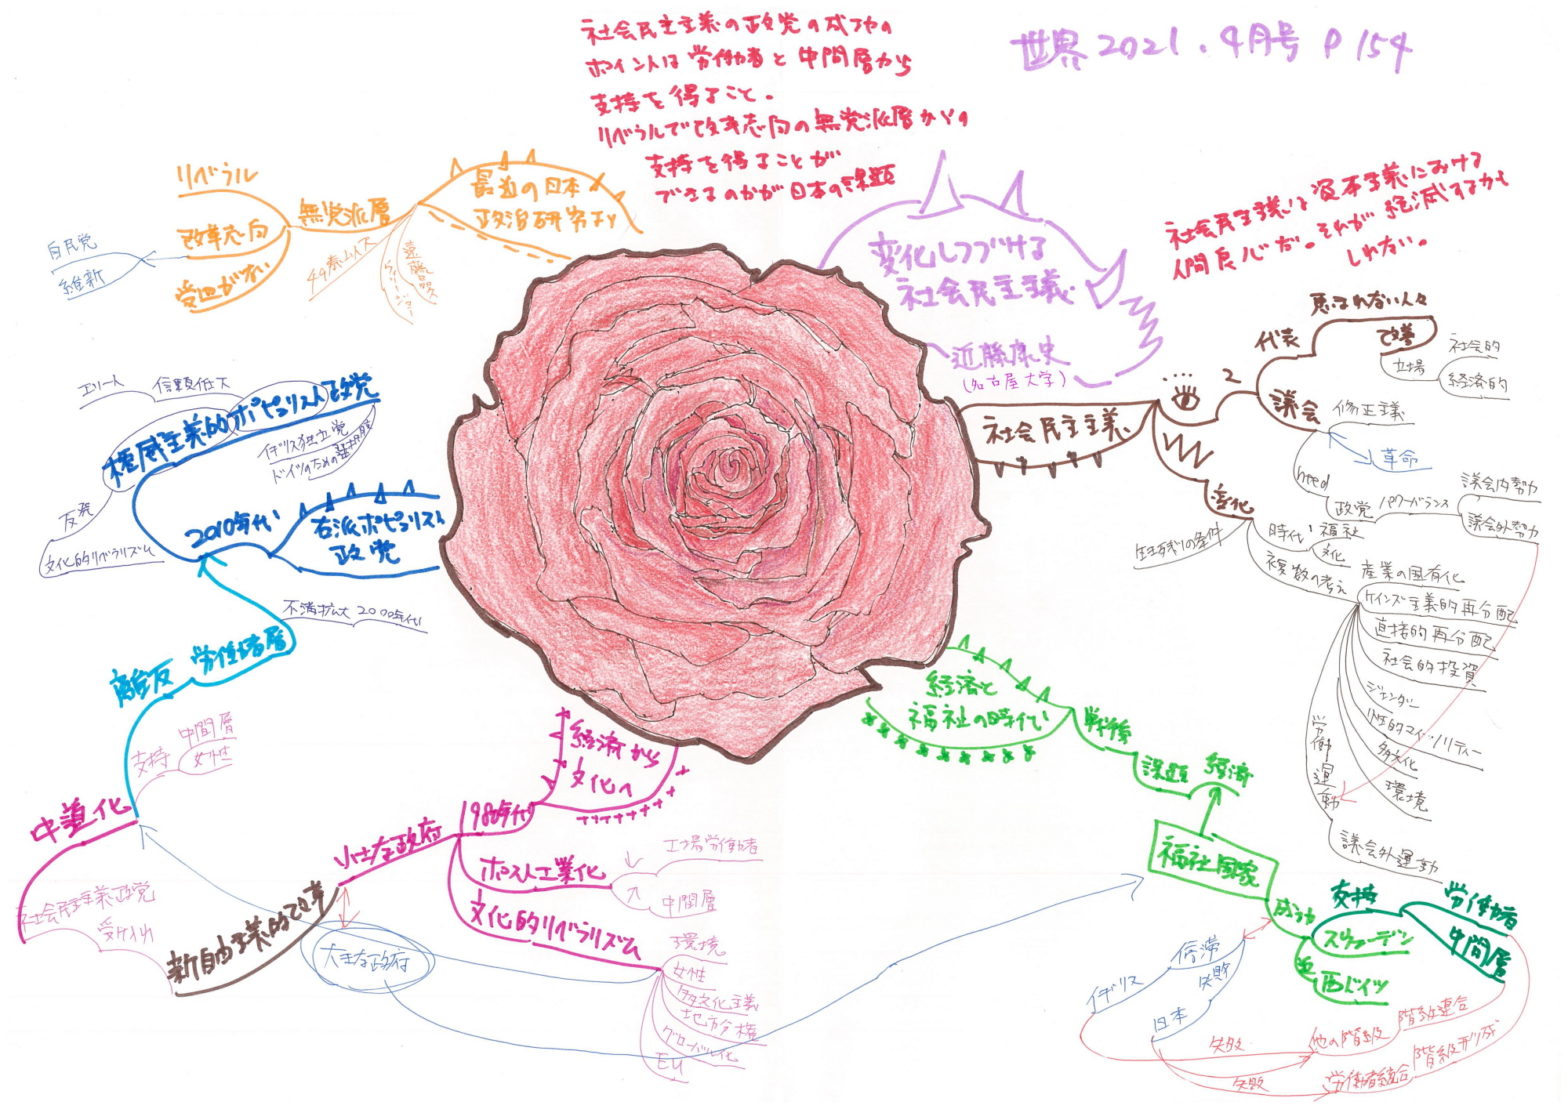 社会民主主義の政党の成功の
ポイントは労働者と中間層から
支持を得ること。
リベラルで改革志向の無党派層からの
支持を得ることが
できるのかが日本の課題
世界 2021.4月号 P154
変化しつづける
社会民主主義
近藤康史
(名古屋大学)
社会民主主義は資本主義における
人間良心だ。それが絶滅するかも
しれない。
社会民主主義
2
代表
恵まれない人々
改善
立場
社会的
経済的
議会
修正主義
革命
need
政党
パワーバランス
議会内勢力
議会外勢力
変化
生き残りの条件
時代
福祉
文化
複数の考え
産業の国有化
ケインズ主義的再分配
直接的再分配
社会的投資
ジェンダー
性的マイノリティー
多文化
環境
労働運動
議会外運動
経済と
福祉の時代
戦後
課題
経済
福祉国家
成功
支持
労働者
中間層
スウェーデン
西ドイツ
停滞
失敗
イギリス
日本
失敗
他の階級
階級連合
失敗
労働者統合
階級形成
経済から
文化へ
1980年代
小さな政府
ポスト工業化
工場労働者
中間層
文化的リベラリズム
環境
女性
多文化主義
地方分権
グローバル化
EU
大きな政府
新自由主義的改革
社会民主主義政党
受け入れ
中道化
支持
中間層
女性
離反
労働者層
不満拡大 2000年代
2010年代
右派ポピュリスト
政党
権威主義的ポピュリスト政党
エリート
信頼低下
イギリス独立党
ドイツのための選択肢
反発
文化的リベラリズム
最近の日本
政治研究より
無党派層
リベラル
改革志向
受皿がない
自民党
維新
遠藤晶久
ウィリー・ジョウ